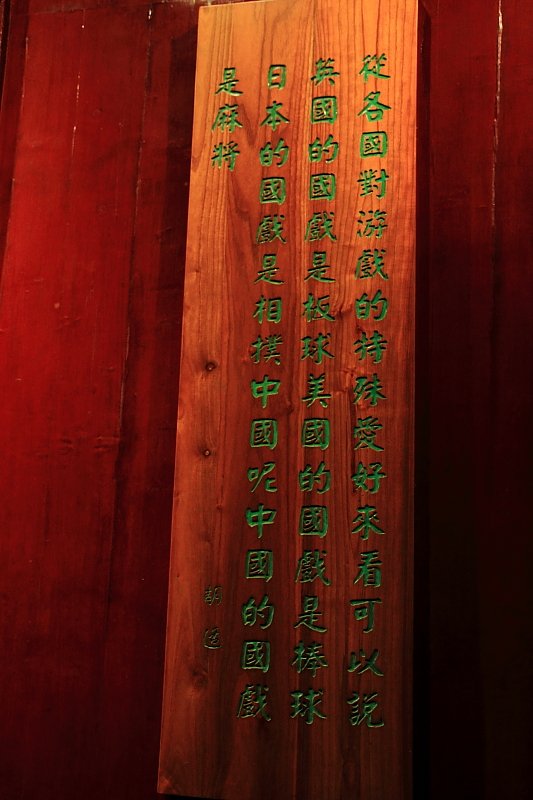 從各國對游戲的特殊愛好來看可以説
英國的國戲是板球美國的國戲是棒球
日本的國戲是相撲中國呢中國的國戲
是麻將
胡適